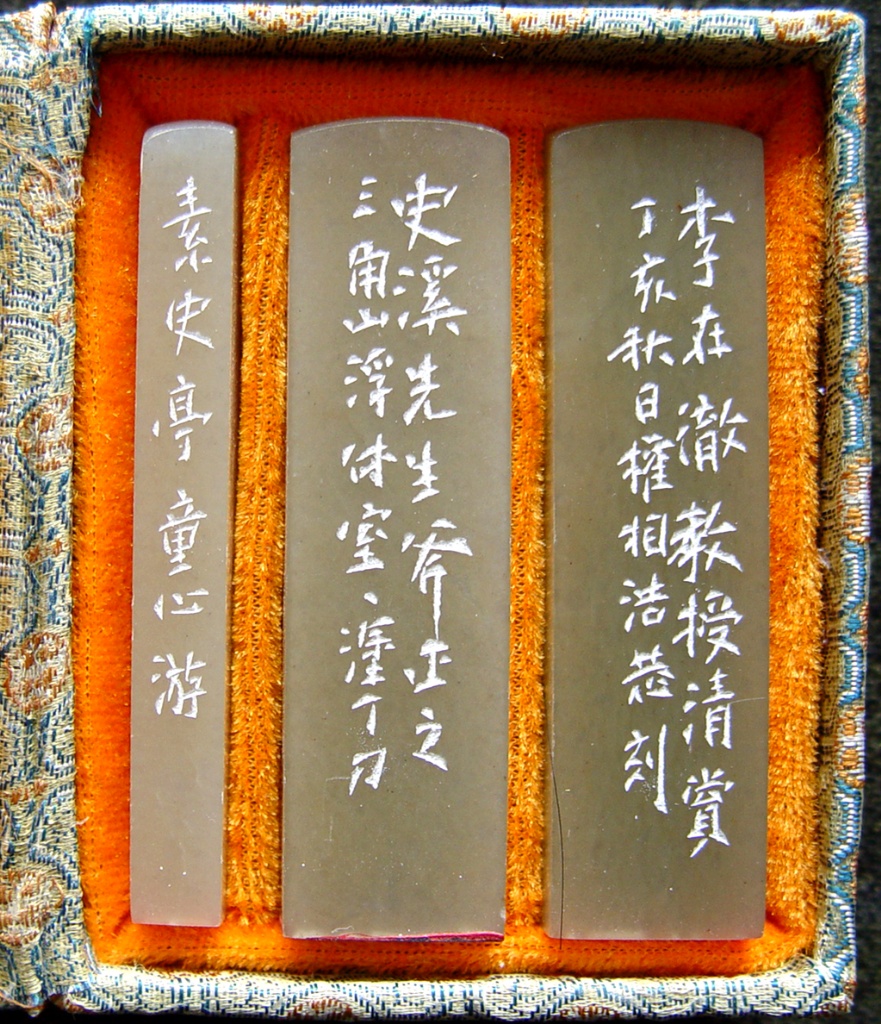 李在澈教授清賞
丁亥秋日權相浩恭刻
史溪先生斧正之
三角山浮休室丶湩丁刀
素史亭童心游